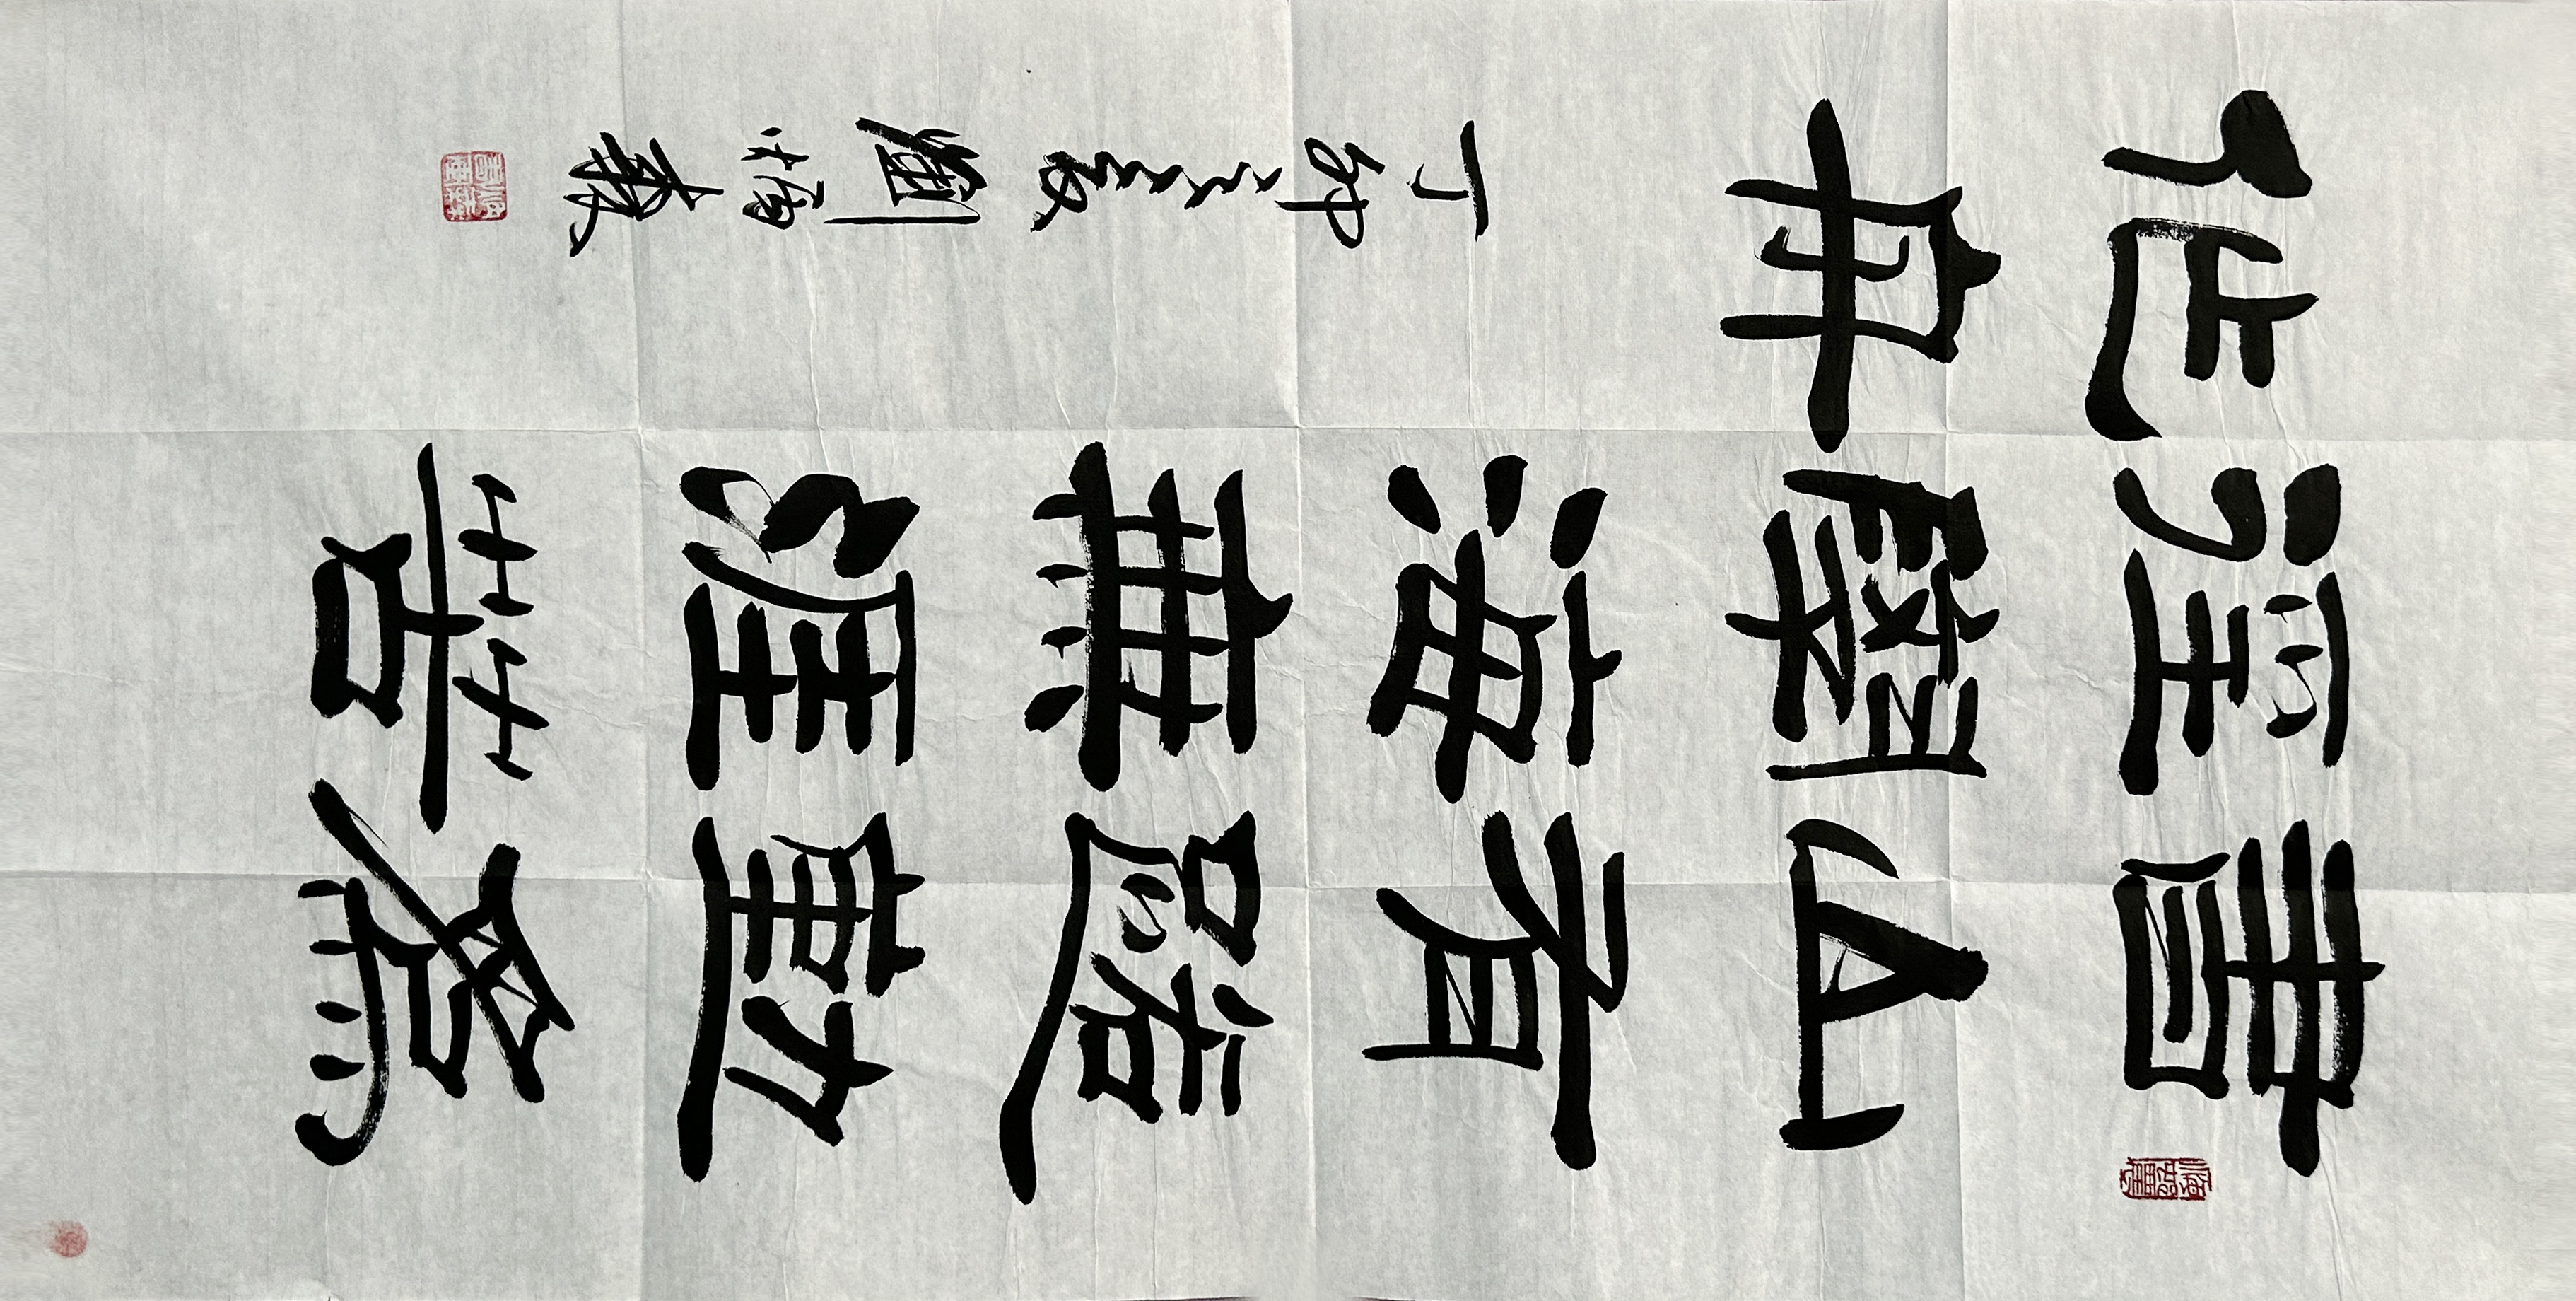 書山有路勤為
徑學海無涯苦
作舟
丁卯